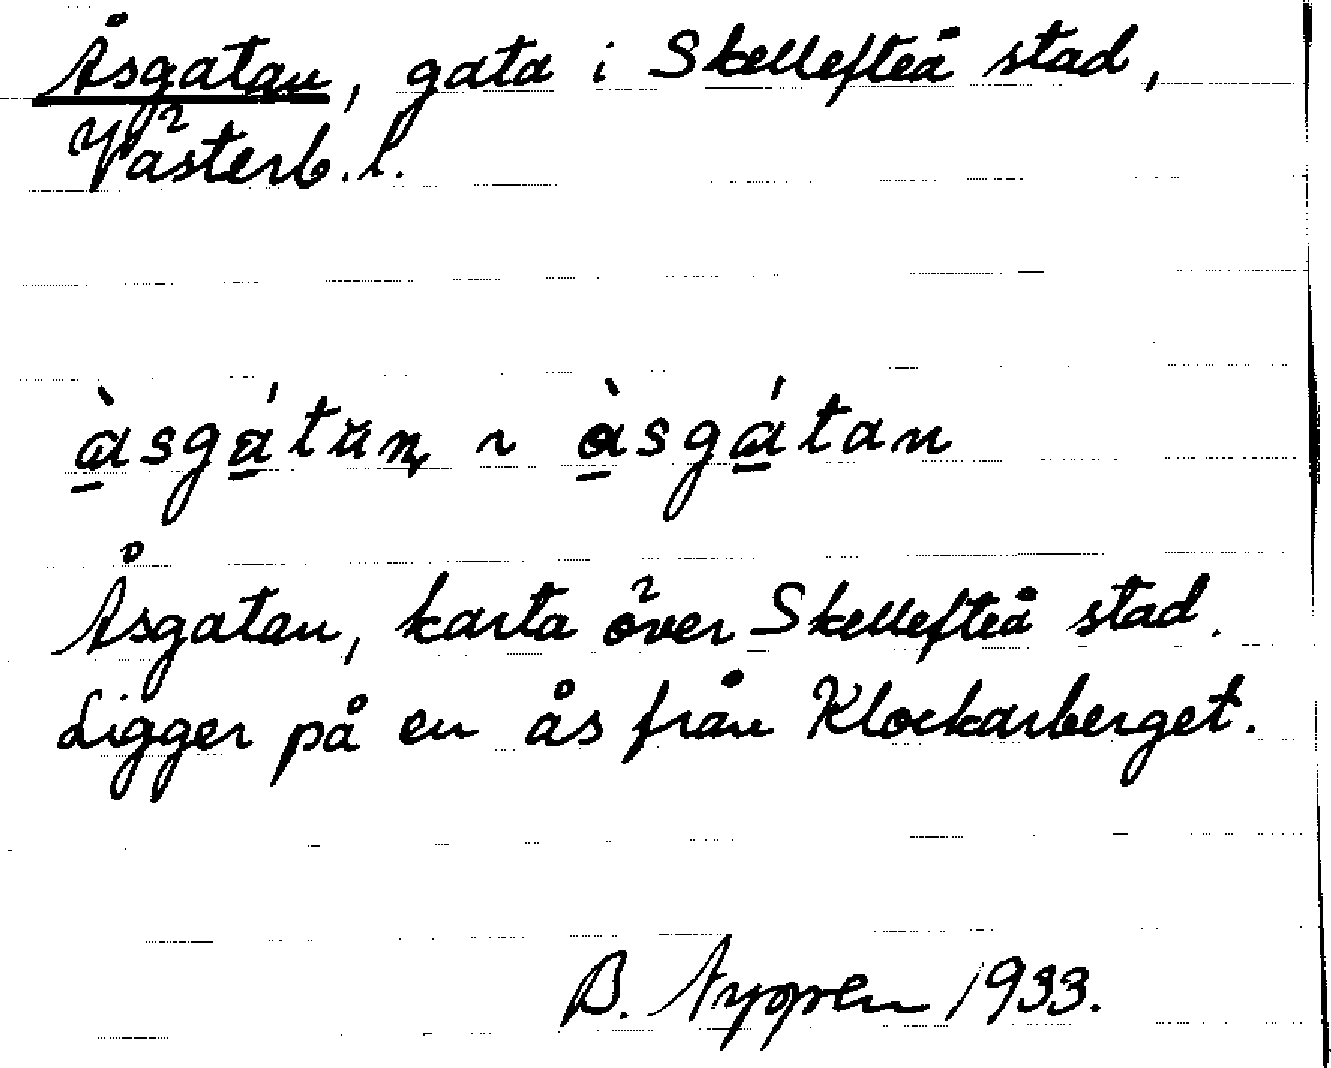 Åsgatan, gata i Skellefteå stad,
Västerb. l.
àsgátan ~ àsgátan
Åsgatan, karta över Skellefteå stad.
Ligger på en ås från Klockarberget.
B. 1933.